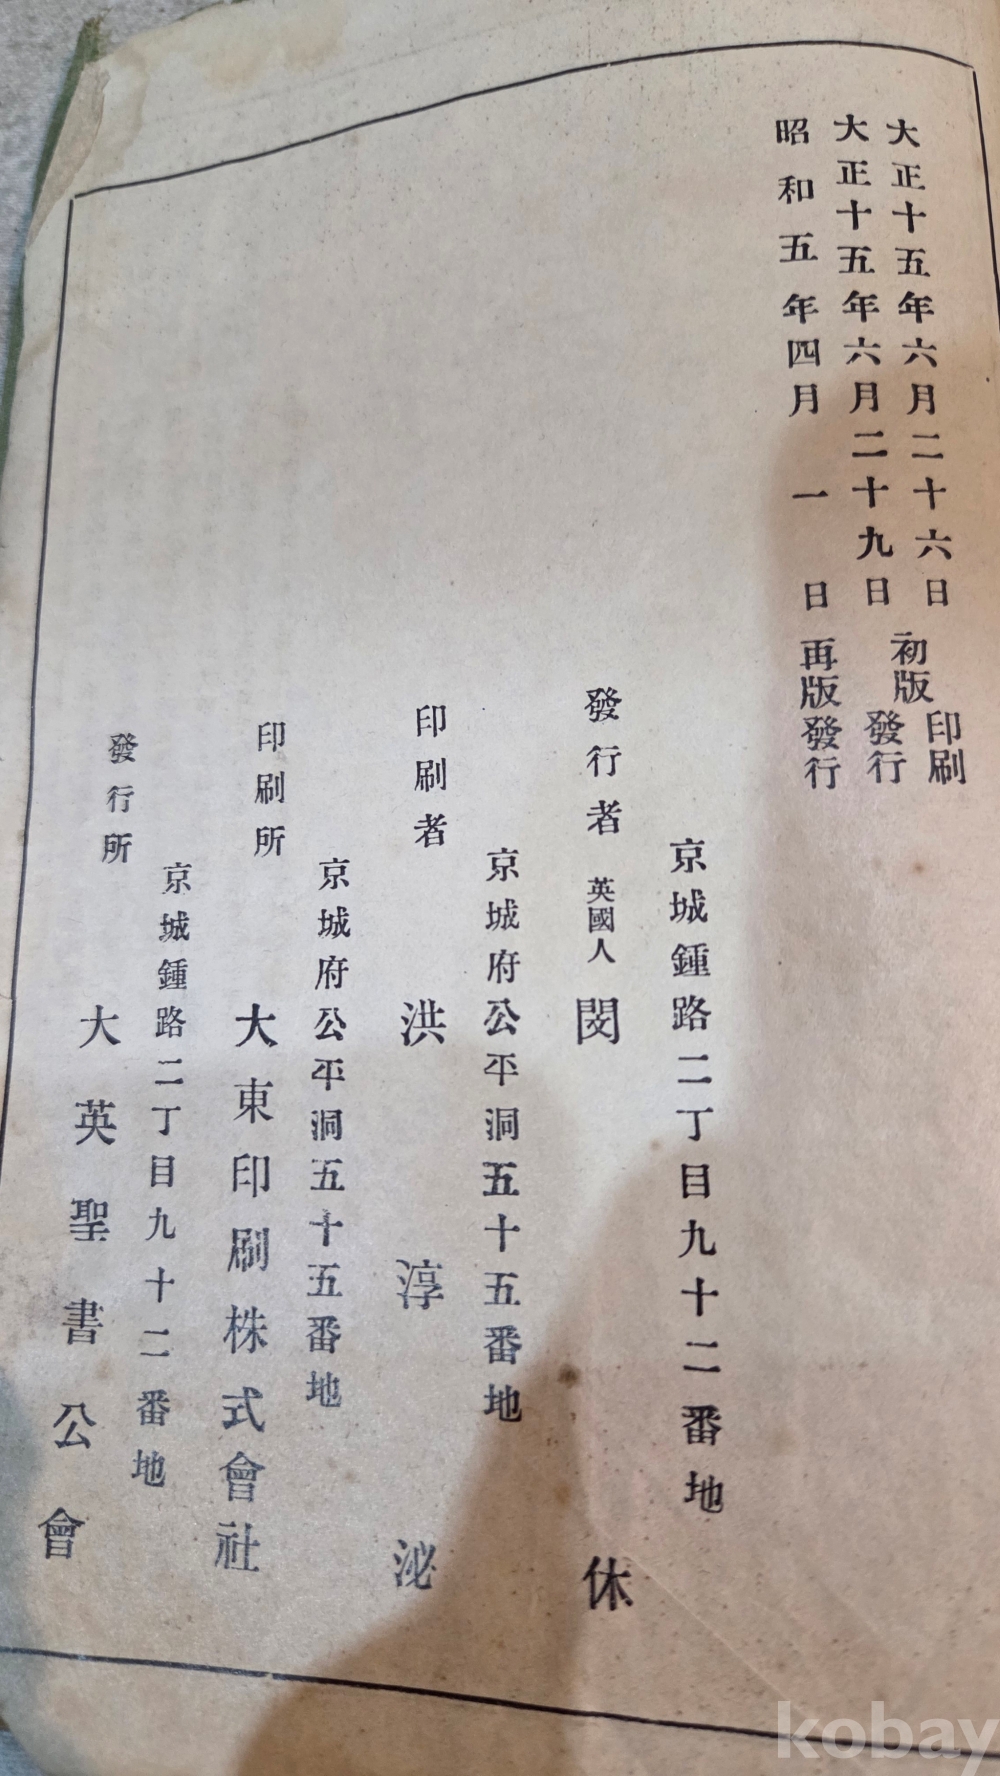 大正十五年六月二十六日 印刷
初版
大正十五年六月二十九日 發行
昭和五年四月一日 再版發行
京城鍾路二丁目九十二番地
發行者 英國人 閔休
京城府公平洞五十五番地
印刷者 洪淳泌
京城府公平洞五十五番地
印刷所 大東印刷株式會社
京城鍾路二丁目九十二番地
發行所 大英聖書公會
kobay